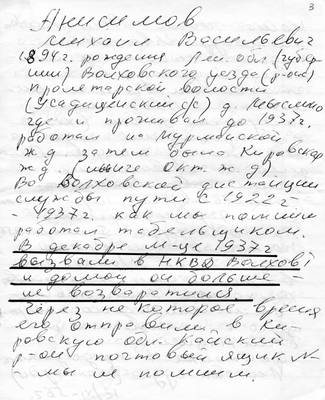 3
Анисимов
Михаил Васильевич
1894 г. рождения Лен. обл (губер
нии) Волховского уезда (р-он)
пролетарской волости
(Усадищенский с/с) д. Мыслино
где и проживал до 1937 г.
работал на Мурманской
ж.д затем была Кировская
ж.д (ныне Окт. ж. д).
Во Волховской дистанции
службы пути с 1922 г -
- 1937 г. как мы помним
работал табельщиком.
В декабре м-це 1937 г
вызвали в НКВД Волхов
и домой он больше -
не возвратился.
Через не которое время
его отправили в Ки-
ровскую обл. Кайский
р-он почтовый ящик N-
мы не помним.